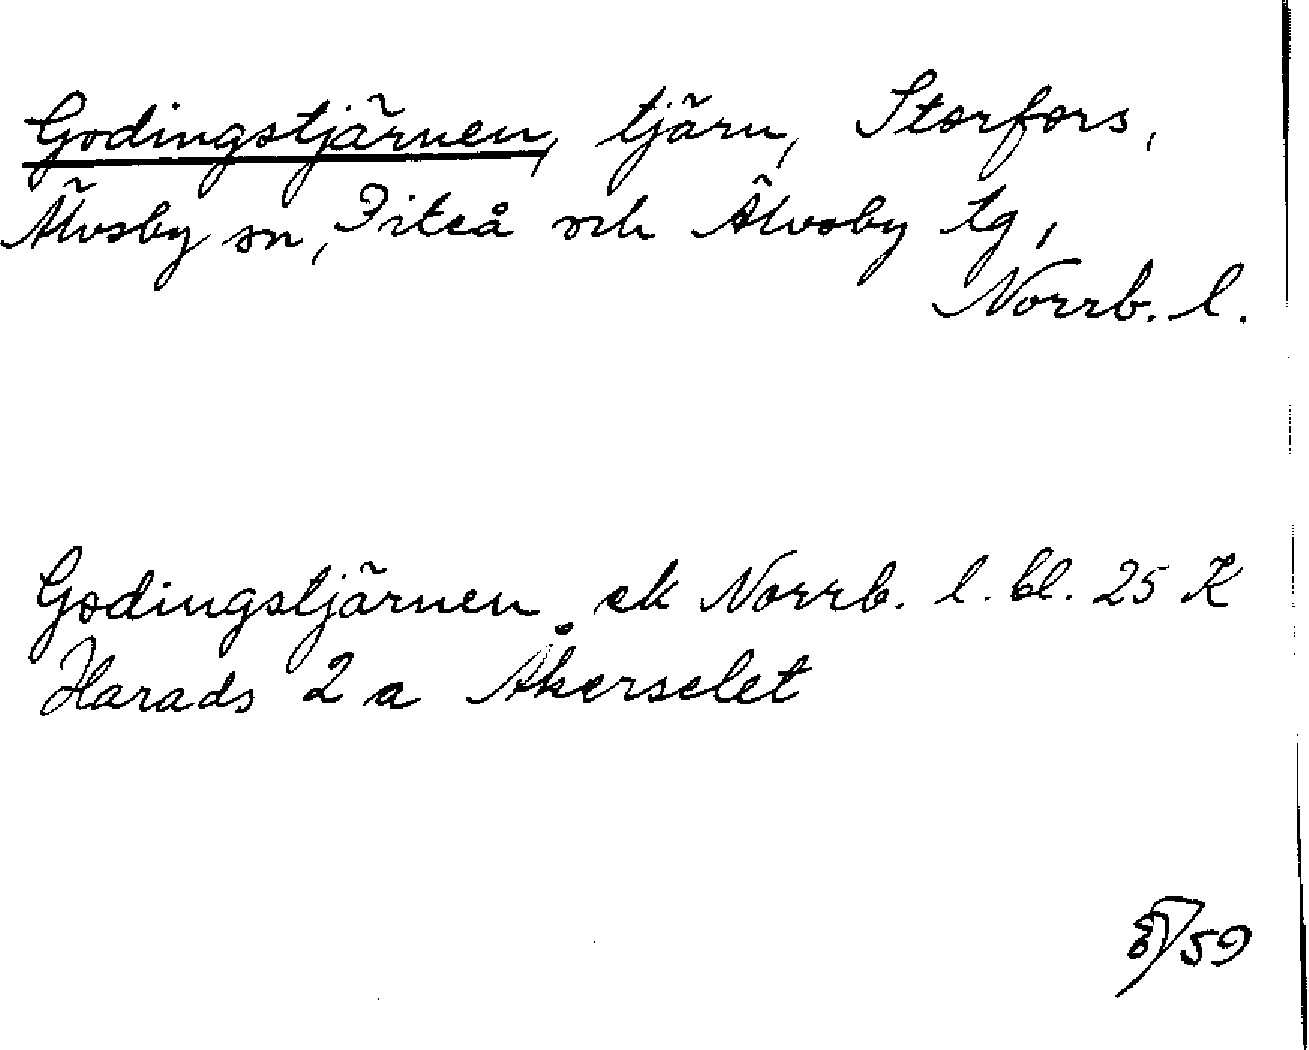 Godingstjärnen, tjärn, Storfors,
Älvsby sn, Piteå och Älvsby tg,
Norrb. l.
Godingstjärnen ek Norrb. l. bl. 25 K
Harads 2 a Åkerselet
/59